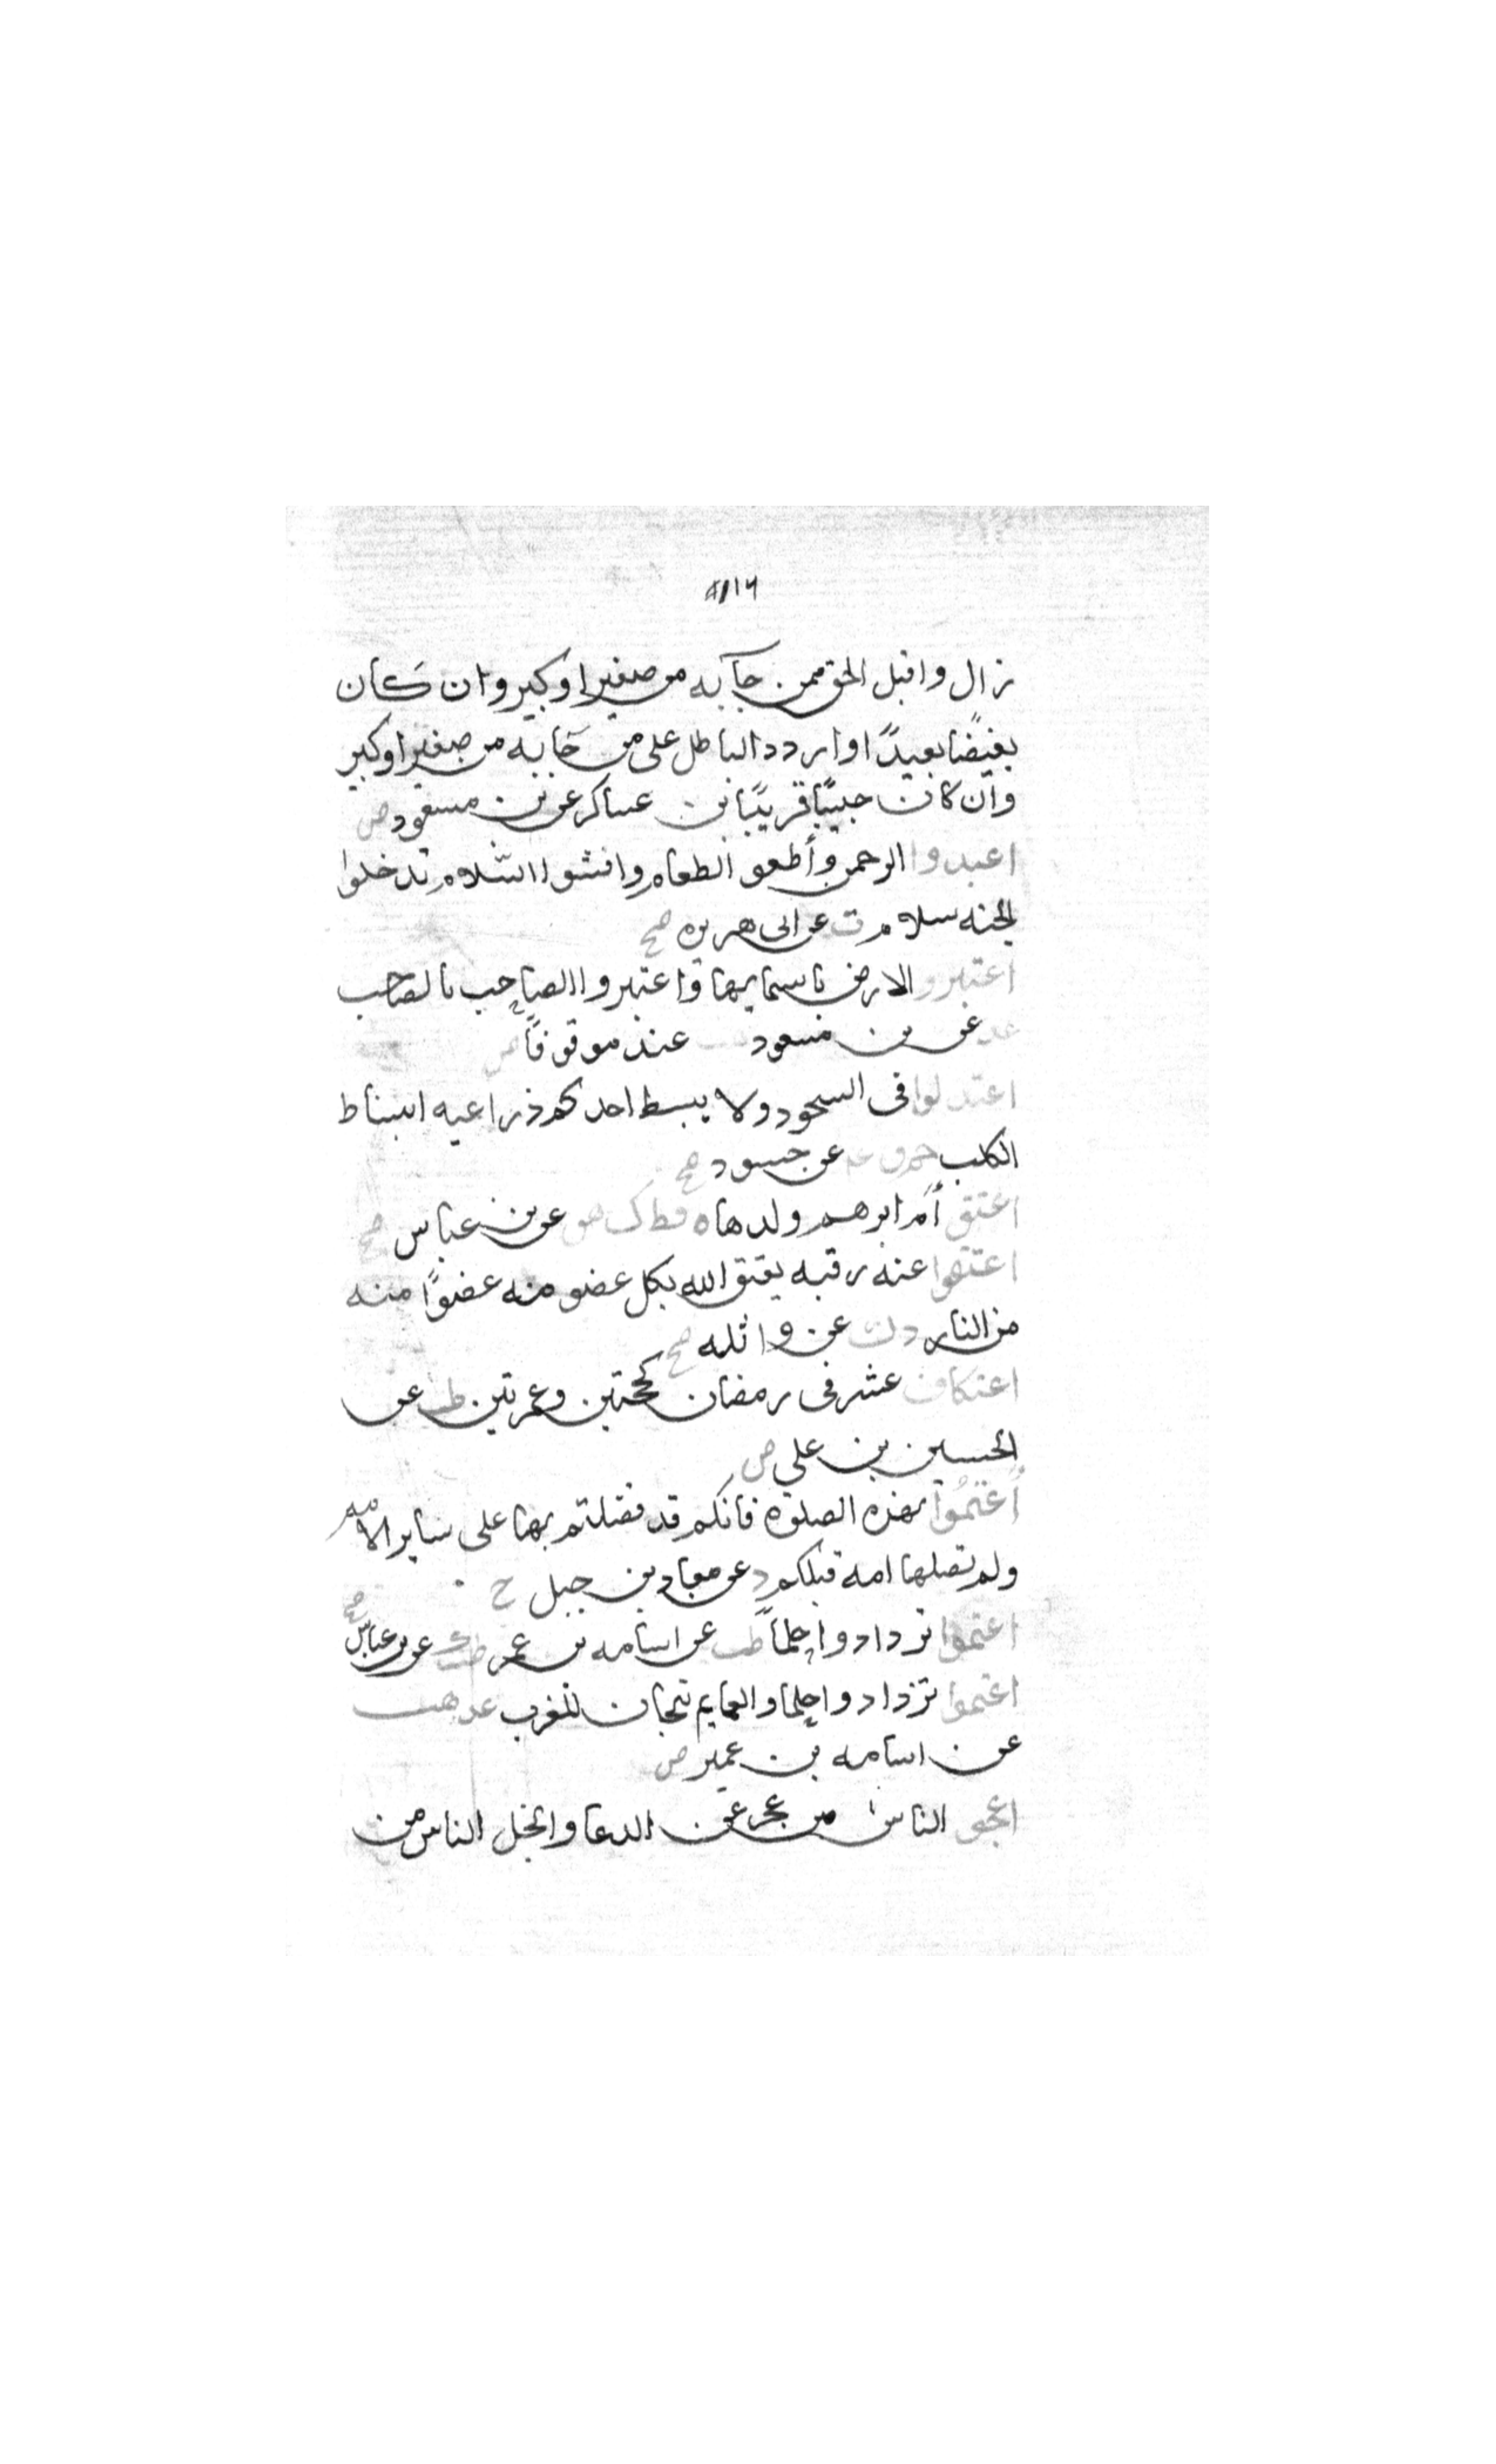 زال واقبل الحق ممن جآ به من صغير او كبير وان كان
بغيضًا بعيدًا واردد الباطل على من جَا به من صغير او كبير
وان كان حبيبًا قريبًا بن عساكر عن بن مسعود ض
اعبدوا الرحمن وأطعموا الطعام وافشوا السّلام تدخلوا
الجنه بسلام ت عن ابى هريره صح
اعتبروا الارض باسمايها واعتبروا الصاحب بالصاحب
عد عن بن مسعود عنه موقوفًا ض
اعتدلوا فى السجود ولا يبسط احدكم ذراعيه انبساط
الكلب حم ق عن صح
اعتق أم ابرهيم ولدها ه قط ك هق عن بن عباس صح
اعتقوا عنه رقبه يعتق الله بكل عضو منه عضوًا منه
من النار د ك عن واثله صح
اعتكاف عشر فى رمضان كحجتين وعمرتين طب عن
الحسين بن على ض
أعْتمُوا بهذه الصلوة فانكم قد فضلتم بها على ساير الامم
ولم تصلها امه قبلكم د عن معاد بن جبل ح
اعتموا تزدادوا حلمًا طب عن اسامه بن عمير طب ك عن بن عباس صح
اعتموا تزدادوا حلما والعمايم تيجان للعرب عد هب
عن اسامه بن عمير ض
اعجز الناس من عجز عن الدعا وابخل الناس من